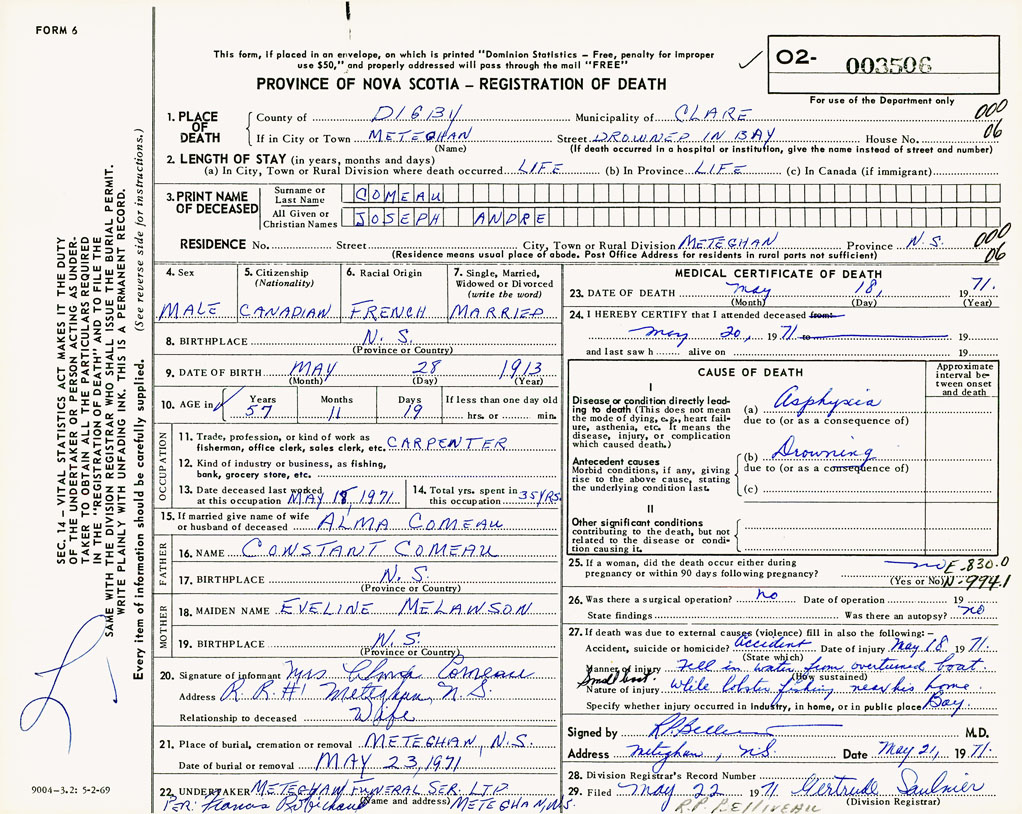 FORM 6
This form, if placed in an envelope, on which is printed "Dominion Statistics – Free, penalty for improper
use $50," and properly addressed will pass through the mail "FREE"
PROVINCE OF NOVA SCOTIA – REGISTRATION OF DEATH
O2- 003506
For use of the Department only
1. PLACE OF DEATH
County of DIGBY Municipality of CLARE 000
If in City or Town METEGHAN Street DROWNED IN BAY House No. 06
(Name) (If death occurred in a hospital or institution, give the name instead of street and number)
2. LENGTH OF STAY (in years, months and days)
(a) In City, Town or Rural Division where death occurred LIFE (b) In Province LIFE (c) In Canada (if immigrant)
3. PRINT NAME OF DECEASED
Surname or Last Name COMEAU
All Given or Christian Names JOSEPH ANDRE
RESIDENCE No. Street City, Town or Rural Division METEGHAN Province N.S. 000
(Residence means usual place of abode. Post Office Address for residents in rural parts not sufficient) 06
4. Sex
MALE
5. Citizenship
(Nationality)
CANADIAN
6. Racial Origin
FRENCH
7. Single, Married,
Widowed or Divorced
(write the word)
MARRIED
8. BIRTHPLACE N. S.
(Province or Country)
9. DATE OF BIRTH MAY 28 1913
(Month) (Day) (Year)
10. AGE in Years Months Days If less than one day old
57 11 19 hrs. or min.
OCCUPATION
11. Trade, profession, or kind of work as
fisherman, office clerk, sales clerk, etc. CARPENTER
12. Kind of industry or business, as fishing,
bank, grocery store, etc.
13. Date deceased last worked
at this occupation MAY 18, 1971
14. Total yrs. spent in
this occupation 35 YRS.
15. If married give name of wife
or husband of deceased ALMA COMEAU
FATHER
16. NAME CONSTANT COMEAU
17. BIRTHPLACE N. S.
(Province or Country)
MOTHER
18. MAIDEN NAME EVELINE MELAWSON
19. BIRTHPLACE N. S.
(Province or Country)
20. Signature of informant Mrs. Alma Comeau
Address R. R. #1 Meteghan, N. S.
Relationship to deceased Wife
21. Place of burial, cremation or removal METEGHAN, N.S.
Date of burial or removal MAY 23, 1971
22. UNDERTAKER METEGHAN FUNERAL SER. LTD
PER: Francis Robichaud (Name and address) METEGHAN, N.S.
MEDICAL CERTIFICATE OF DEATH
23. DATE OF DEATH May 18, 1971.
(Month) (Day) (Year)
24. I HEREBY CERTIFY that I attended deceased from:
May 20, 1971 to 19
and last saw h alive on 19
CAUSE OF DEATH
Approximate interval between onset and death
I
Disease or condition directly leading to death (This does not mean the mode of dying, e.g., heart failure, asthenia, etc. It means the disease, injury, or complication which caused death.)
(a) Asphyxia
due to (or as a consequence of)
Antecedent causes
Morbid conditions, if any, giving rise to the above cause, stating the underlying condition last.
(b) Drowning
due to (or as a consequence of)
(c)
II
Other significant conditions
contributing to the death, but not related to the disease or condition causing it.
25. If a woman, did the death occur either during
pregnancy or within 90 days following pregnancy? no
(Yes or No)
E-830.0
N-994.1
26. Was there a surgical operation? no Date of operation 19
State findings Was there an autopsy? no
27. If death was due to external causes (violence) fill in also the following: –
Accident, suicide or homicide? Accident Date of injury May 18 1971.
(State which)
Manner of injury Fell in water from overturned boat.
(How sustained)
Small boat.
Nature of injury While lobster fishing near his home.
Specify whether injury occurred in industry, in home, or in public place Bay.
Signed by M.D.
Address Meteghan, N.S. Date May 21, 1971.
28. Division Registrar's Record Number
29. Filed May 22 1971 Gertrude Saulnier
(Division Registrar)
R.P. BELLIVEAU
SEC. 14 – VITAL STATISTICS ACT MAKES IT THE DUTY
OF THE UNDERTAKER OR PERSON ACTING AS UNDERTAKER TO OBTAIN ALL THE PARTICULARS REQUIRED
IN THE "REGISTRATION OF DEATH" AND TO FILE THE
SAME WITH THE DIVISION REGISTRAR WHO SHALL ISSUE THE BURIAL PERMIT.
WRITE PLAINLY WITH UNFADING INK. THIS IS A PERMANENT RECORD.
Every item of information should be carefully supplied. (See reverse side for instructions.)
9004-3.2: 5-2-69